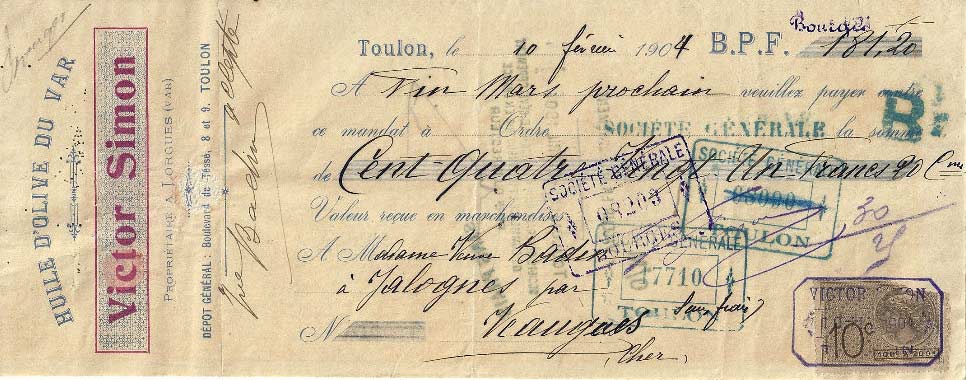 HUILE D'OLIVE DU VAR
Victor Simon
PROPRIÉTAIRE A LORGUES (VAR)
DÉPOT GÉNÉRAL: Boulevard de Tessé, 8 et 9. TOULON
Toulon, le 10 février 1904 B.P.F. 181,20
Bourges
A Fin Mars prochain veuillez payer contre
ce mandat à Ordre SOCIÉTÉ GÉNÉRALE la somme
de Cent Quatre Vingt Un Francs 20 Cmes
Valeur reçue en marchandises
A Madame Veuve Badin
à Jalognes par
Veaugues
(Sans frais)
Cher
N
B
SOCIÉTÉ GÉNÉRALE
08208
BOURGES
SOCIÉTÉ GÉNÉRALE
TOULON
SOCIÉTÉ GÉNÉRALE
77710
TOULON
30
VICTOR SIMON
10c